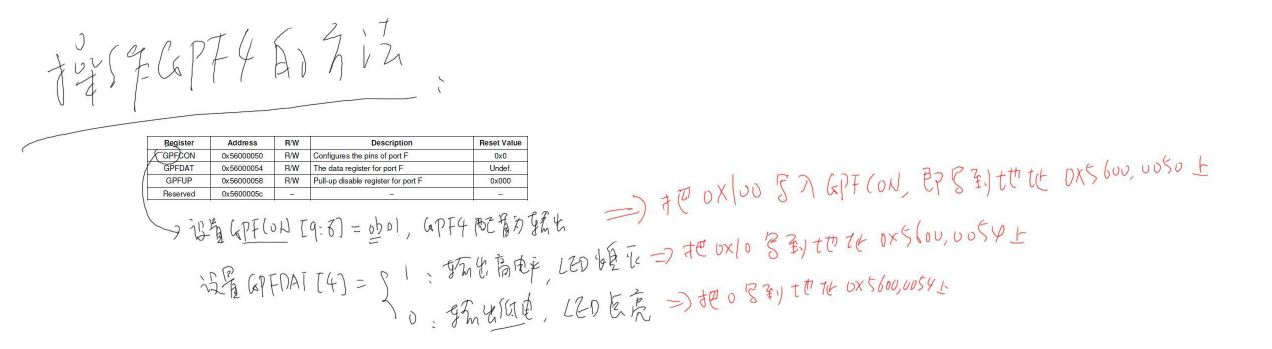 操作GPF4的方法:
Register Address R/W Description Reset Value
GPFCON 0x56000050 R/W Configures the pins of port F 0x0
GPFDAT 0x56000054 R/W The data register for port F Undef.
GPFUP 0x56000058 R/W Pull-up disable register for port F 0x000
Reserved 0x5600005c – – –
设置GPFCON[9:8]=0b01, GPF4配置为输出 => 把0X100写入GPFCON, 即写到地址0X5600,0050上
设置GPFDAT[4]= { 1: 输出高电平, LED熄灭 => 把0X10写到地址0X5600,0054上
0: 输出低电, LED点亮 => 把0写到地址0X5600,0054上